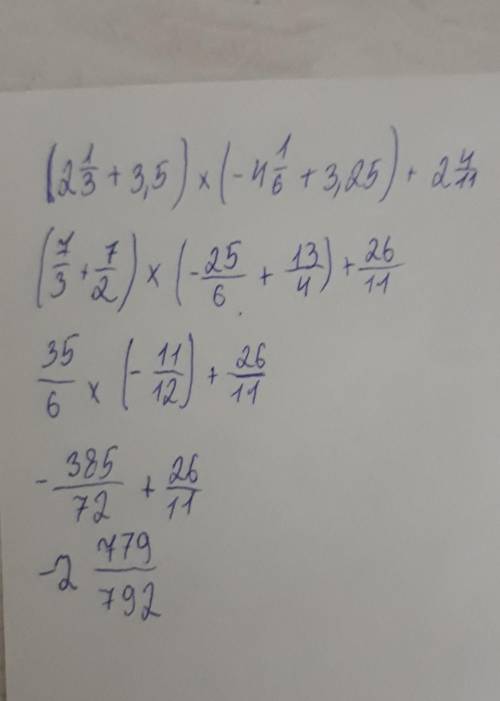 (2 1/3 + 3,5) × (-4 1/6 + 3,25) + 2 4/11
(7/3 + 7/2) × (-25/6 + 13/4) + 26/11
35/6 × (-11/12) + 26/11
-385/72 + 26/11
-2 779/792